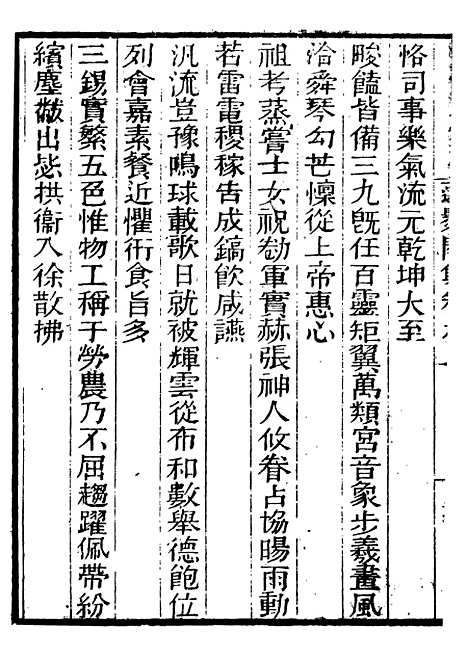 恪司事樂氣流元乾坤大至
畯饎皆備三九旣任百靈矩翼萬類宮音象步羲畫風
洽舜琴勾芒懍從上帝惠心
祖考蒸嘗士女祝勑軍實赫張神人攸眷占協暘雨動
若雷電稷稼告成鎬飮咸讌
汎流豈豫鳴球載歌日就被輝雲從布和數舉德飽位
列會嘉素餐近懼術食旨多
三錫實繁五色惟物工稱于勞農乃不屈趨躍佩帶紛
繽塵黻出毖拱衞入徐散拂